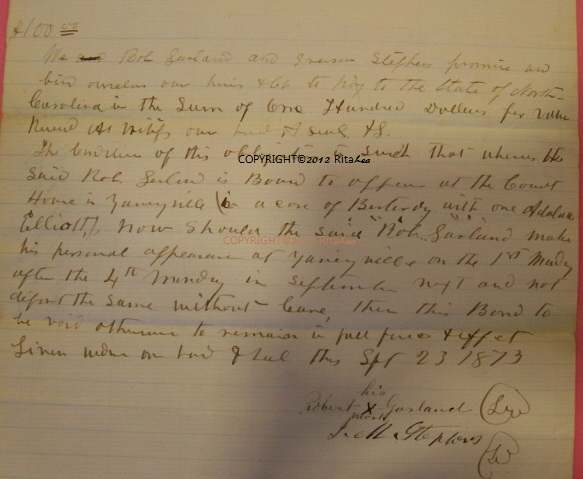 $100 00
We and Rob Garland and Iverson Stephens promise and
bind ourselves our heirs &c to pay to the State of North
Carolina in the Sum of One Hundred Dollars for value
our hand & seal &c.
The Condition of this obligation is such that where as
COPYRIGHT©2012 RitaLea
said Rob Garland is Bound to appear at the Court
House in Yanceyville (in a case of Bastardy with one Adaline
Elliott), now should the said "Rob Garland" make
COPYRIGHT
his personal appearance at Yanceyville on the 1st Monday
after the 4th Monday in September next and not
depart the same without leave, then this Bond to
be void otherwise to remain in full force & effect
Given under our hand & Seal this Spt 23 1873
his
Robert X Garland (Seal)
mark
Stephens